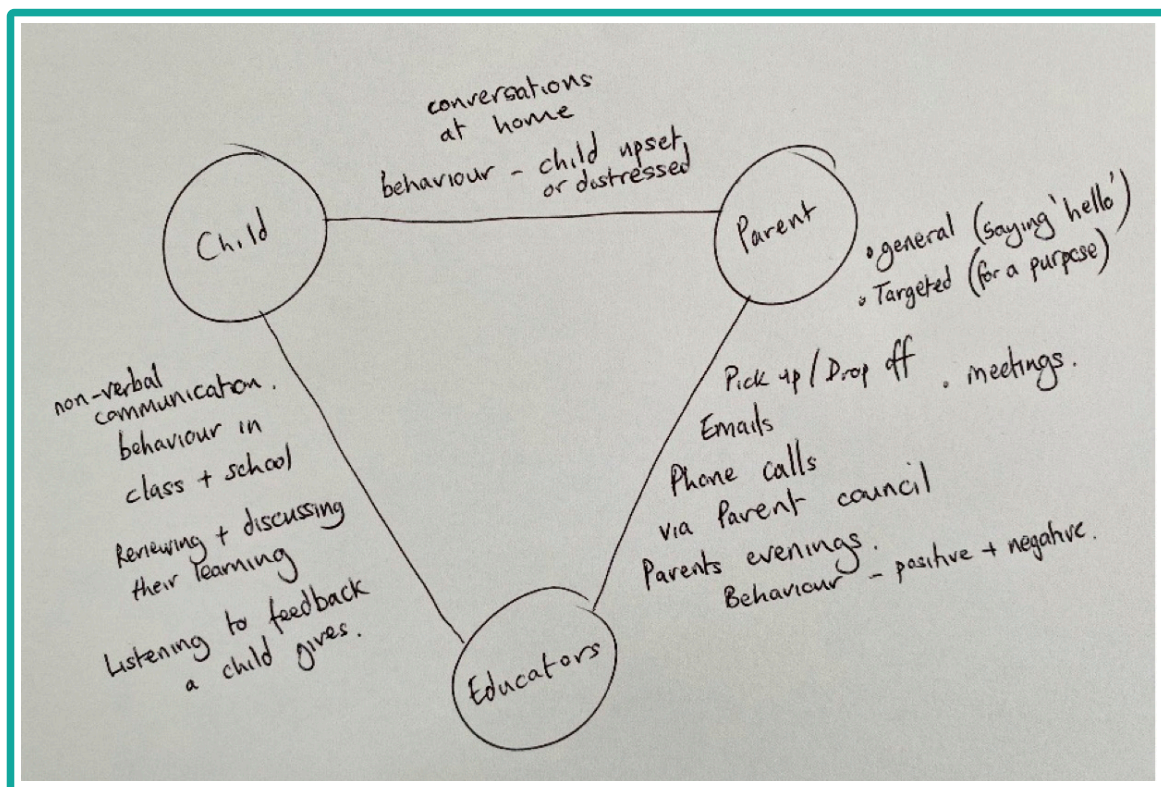 conversations
at home
behaviour - child upset
or distressed
Child
Parent
• general (saying 'hello')
• Targeted (for a purpose)
non-verbal
communication.
behaviour in
class + school
Reviewing + discussing
their learning
Listening to feedback
a child gives.
Pick up / Drop off . meetings.
Emails
Phone calls
via Parent council
Parents evenings.
Behaviour - positive + negative.
Educators